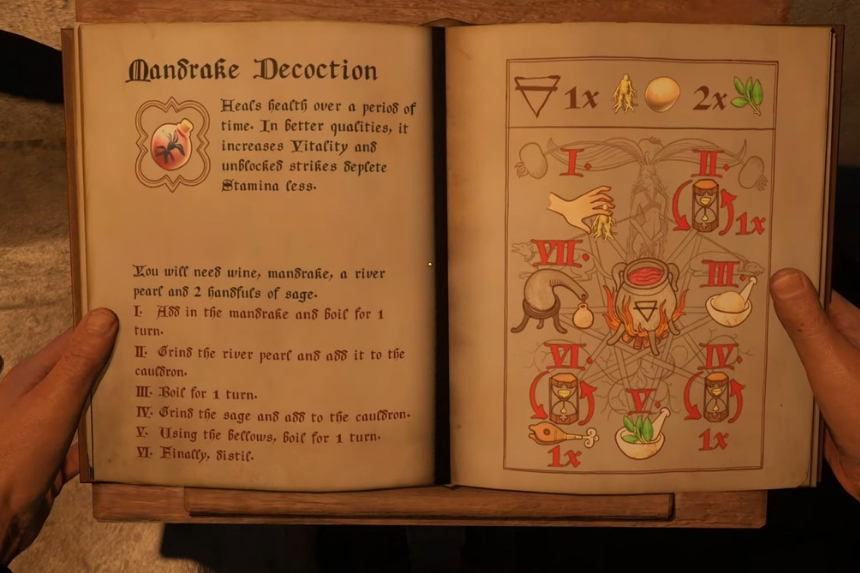 Mandrake Decoction
Heals health over a period of
time. In better qualities, it
increases Vitality and
unblocked strikes deplete
Stamina less.
You will need wine, mandrake, a river
pearl and 2 handfuls of sage.
I. Add in the mandrake and boil for 1
turn.
II. Grind the river pearl and add it to the
cauldron.
III. Boil for 1 turn.
IV. Grind the sage and add to the cauldron.
V. Using the bellows, boil for 1 turn.
VI. Finally, distil.
1x 2x
I. II.
1x
VII.
III.
VI. IV.
V.
1x
1x